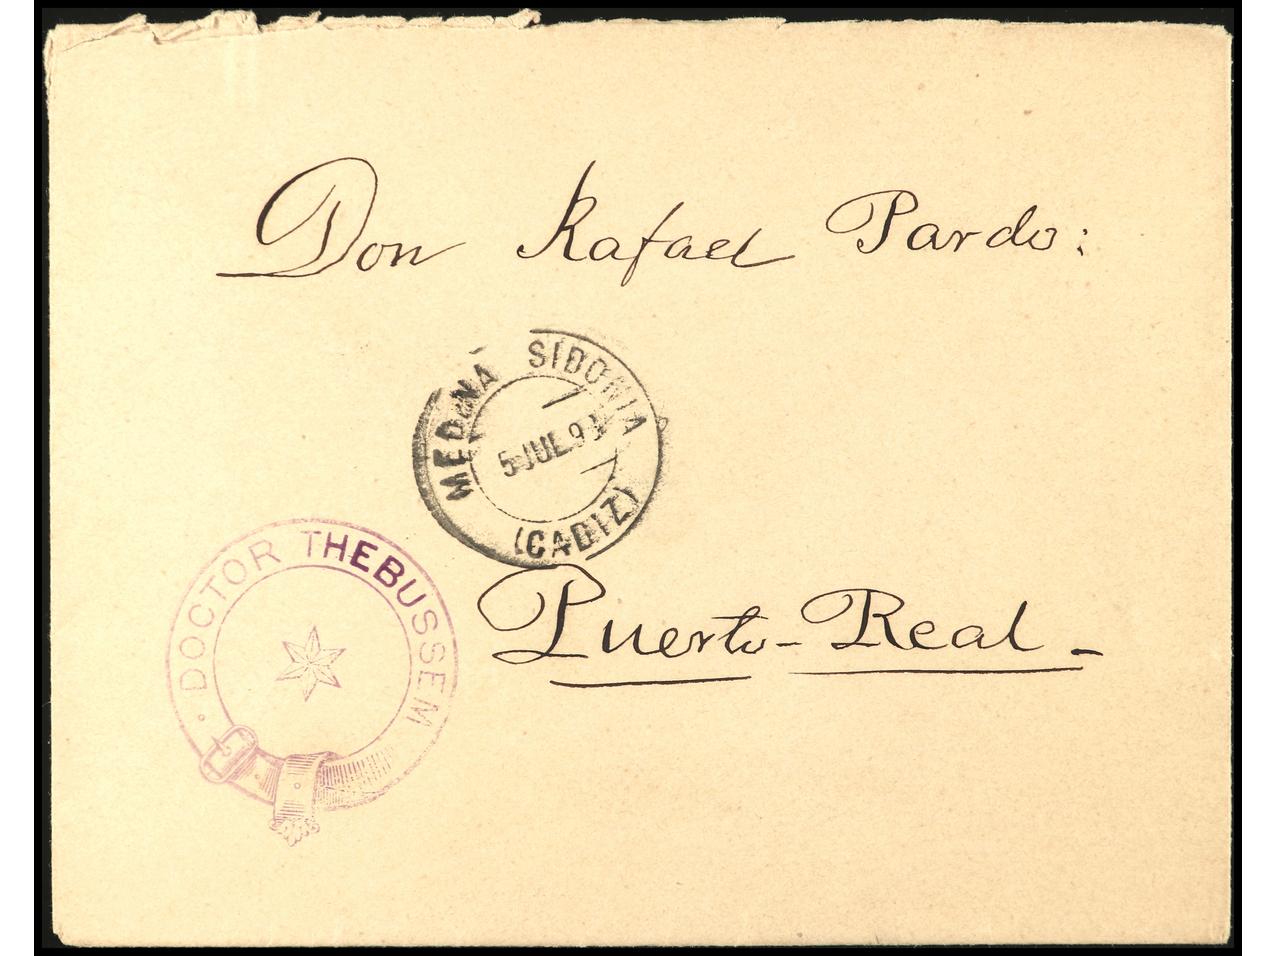 Don Rafael Pardo:
MEDINA SIDONIA
5 JUL 9
(CADIZ)
DOCTOR THEBUSSEM
Puerto-Real-